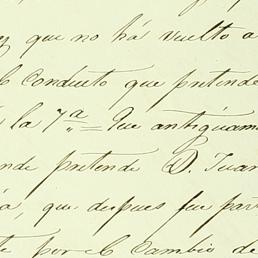 que no há vuelto a
Conducto que pretende
la 7a = Que antiguam
nde pretende D. Juan
a, que despues fue par
te por el Cambio de